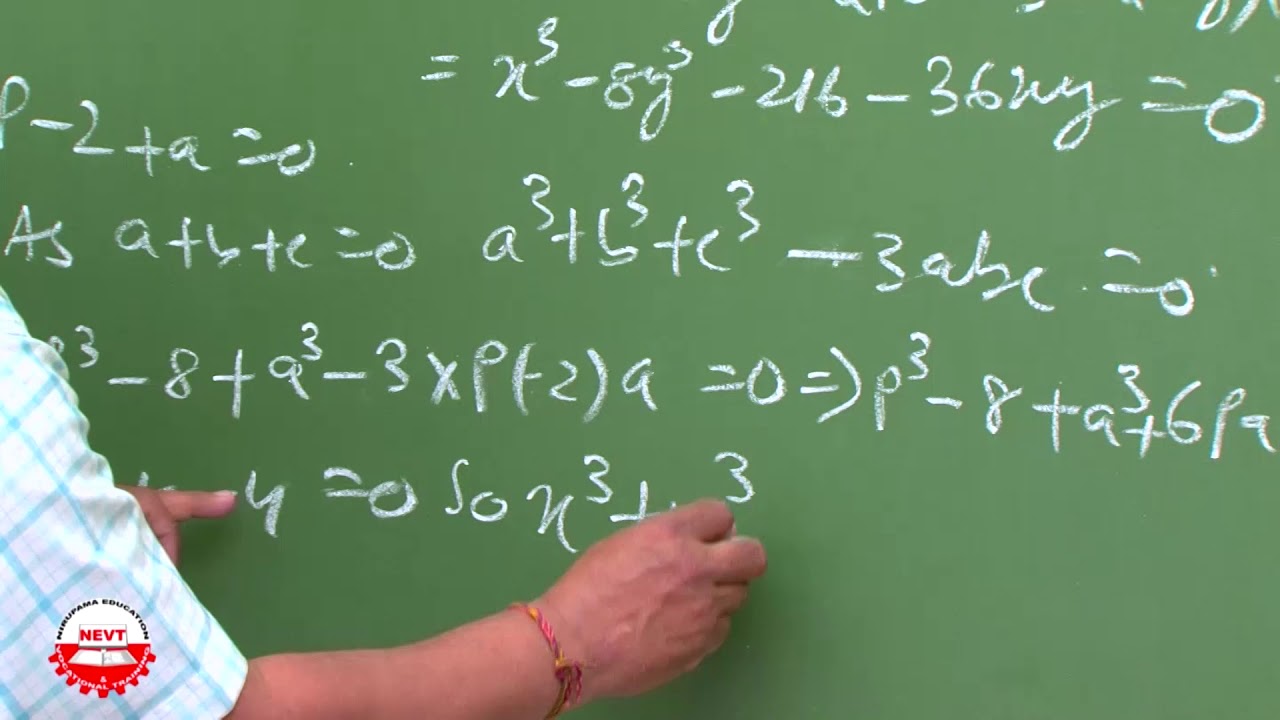 = x³ - 8y³ - 216 - 36xy = 0
P - 2 + a = 0
As a + b + c = 0 a³ + b³ + c³ - 3abc = 0
p³ - 8 + a³ - 3 × p(-2)a = 0 => p³ - 8 + a³ + 6pa
- 4 = 0 So x³ + ³
NIRUPAMA EDUCATION
NEVT
&
VOCATIONAL TRAINING